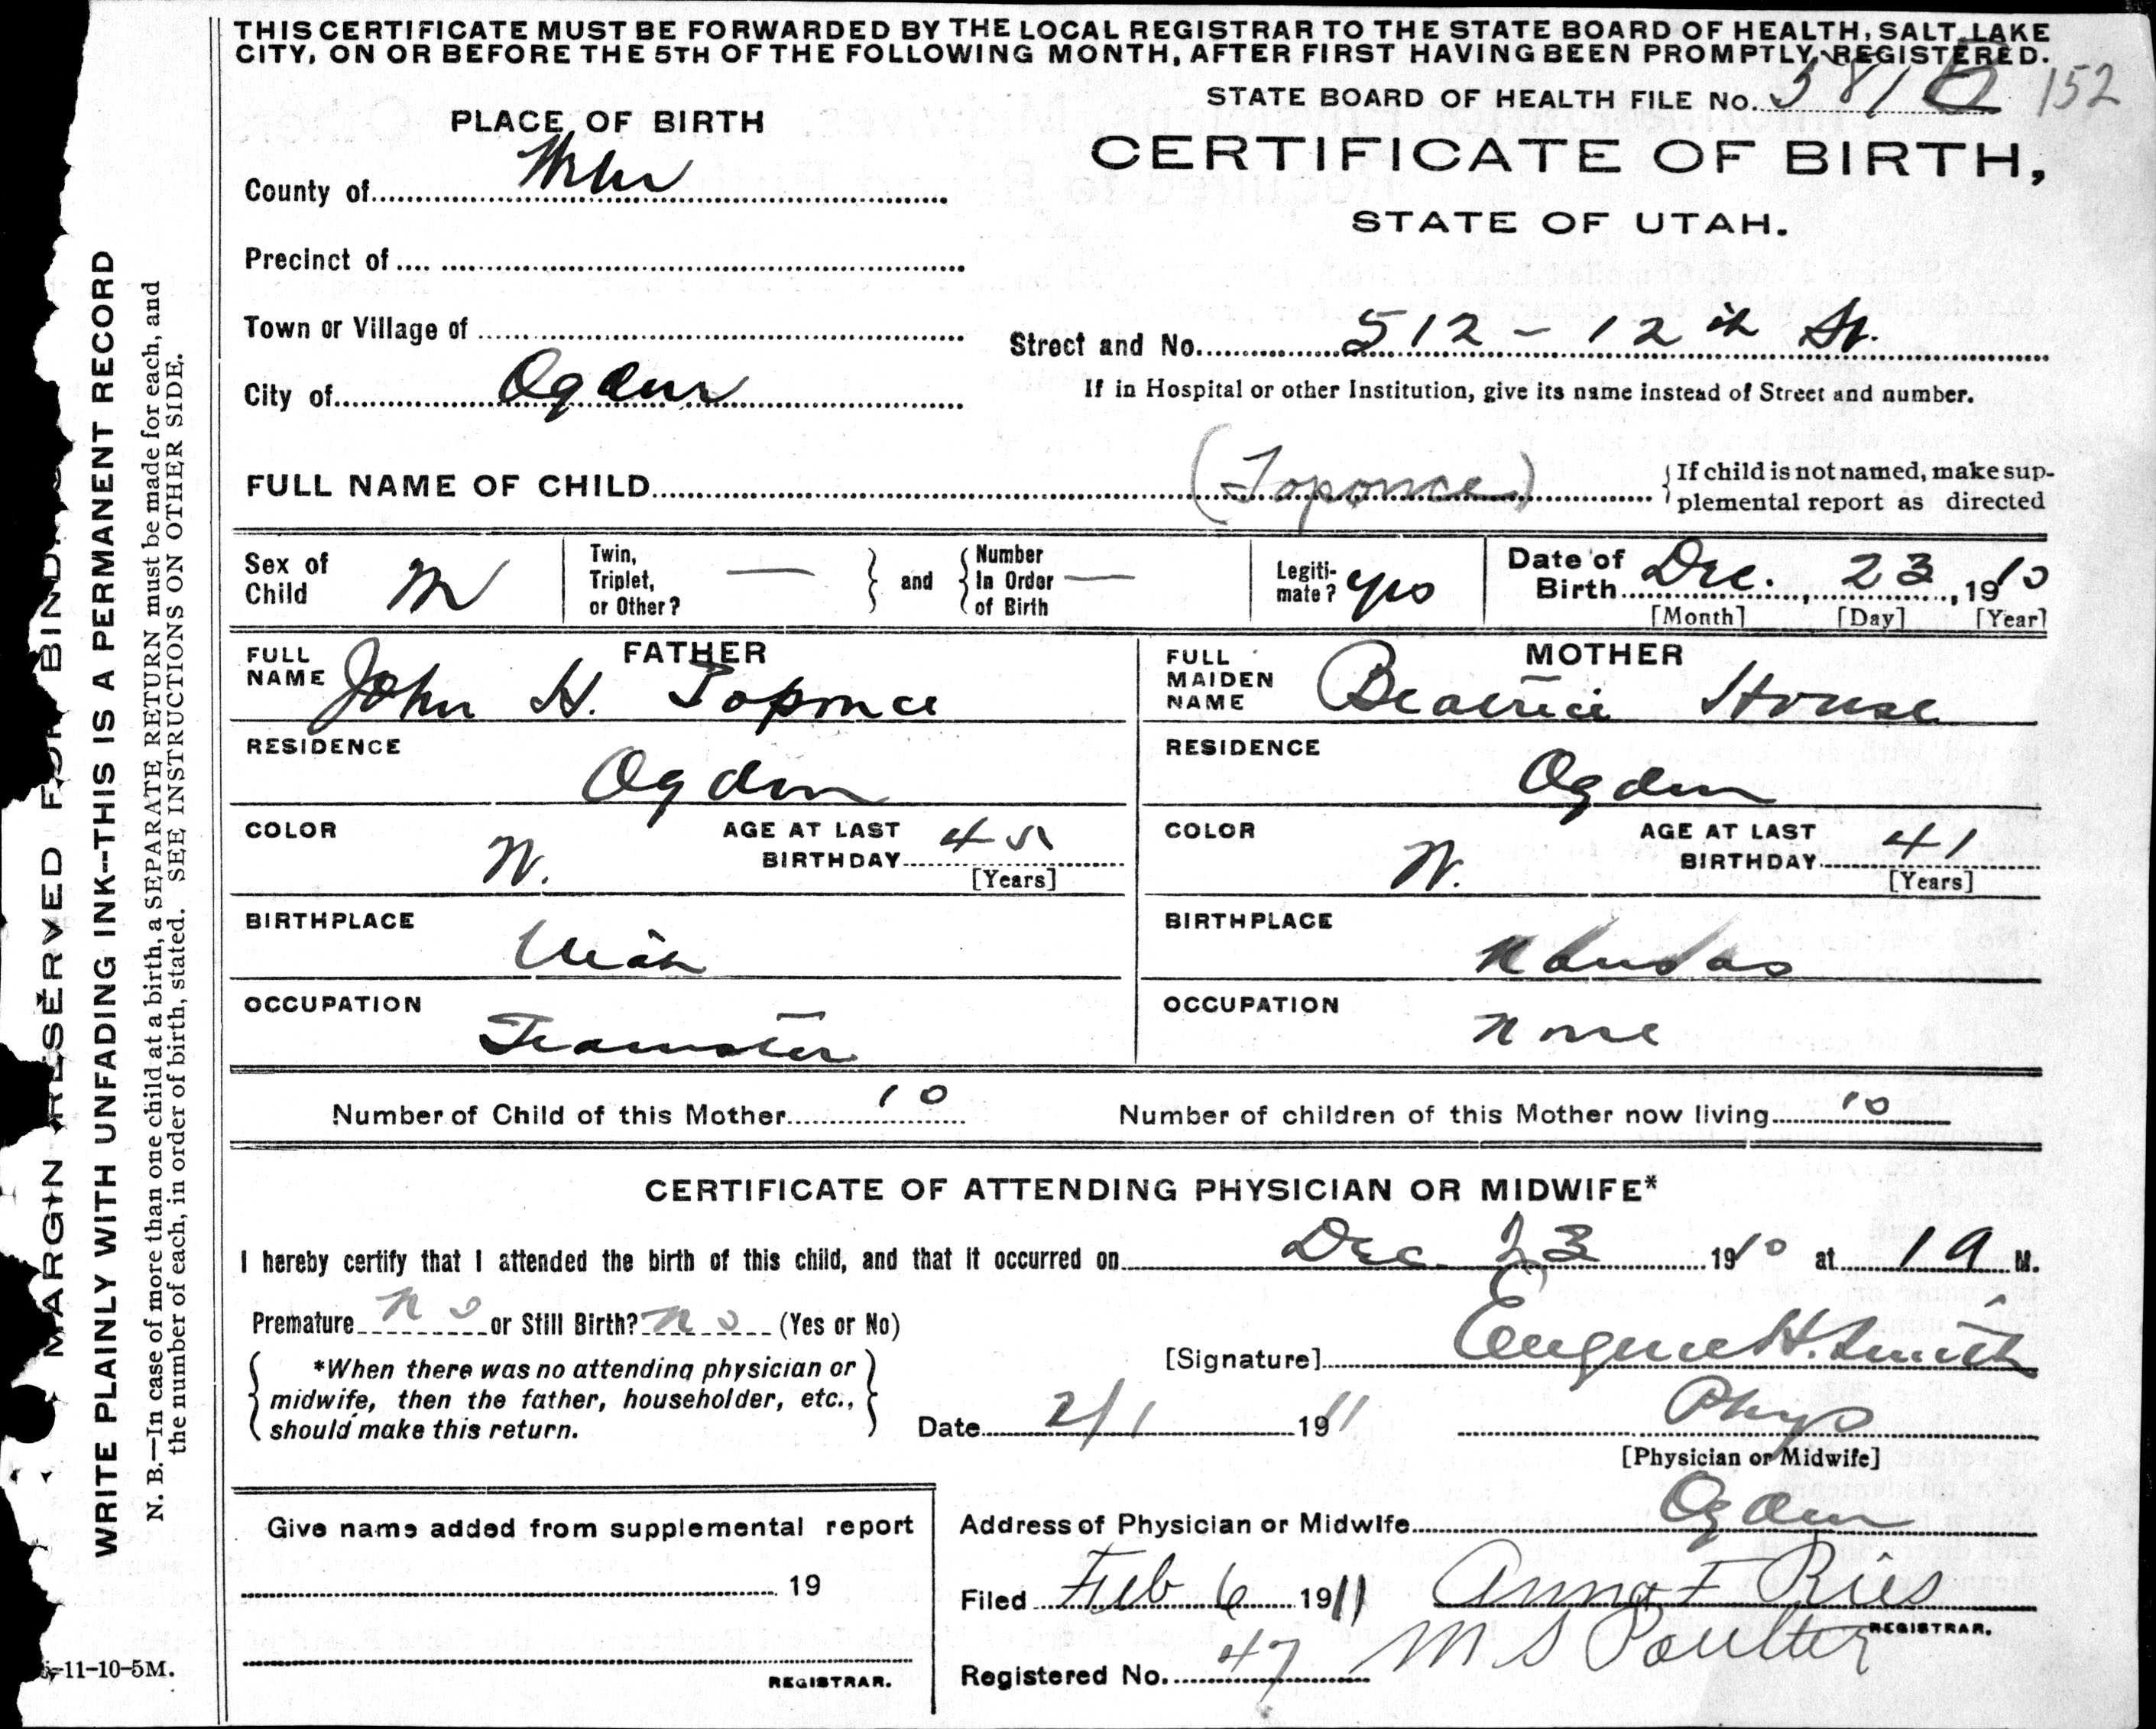 THIS CERTIFICATE MUST BE FORWARDED BY THE LOCAL REGISTRAR TO THE STATE BOARD OF HEALTH, SALT LAKE
CITY, ON OR BEFORE THE 5TH OF THE FOLLOWING MONTH, AFTER FIRST HAVING BEEN PROMPTLY REGISTERED.
STATE BOARD OF HEALTH FILE No. 152
PLACE OF BIRTH
CERTIFICATE OF BIRTH,
STATE OF UTAH.
County of Weber
Precinct of
Town or Village of
Street and No. 512 - 12th St.
City of Ogden
If in Hospital or other Institution, give its name instead of Street and number.
FULL NAME OF CHILD (Toponce) { If child is not named, make sup-
plemental report as directed
Sex of Child M
Twin, Triplet, or Other? — } and { Number In Order of Birth —
Legiti-mate? yes
Date of Birth Dec. 23, 1910
[Month] [Day] [Year]
FATHER
FULL NAME John H. Toponce
RESIDENCE Ogden
COLOR W. AGE AT LAST BIRTHDAY 45
[Years]
BIRTHPLACE Utah
OCCUPATION Teamster
MOTHER
FULL MAIDEN NAME Beatrice House
RESIDENCE Ogden
COLOR W. AGE AT LAST BIRTHDAY 41
[Years]
BIRTHPLACE Kansas
OCCUPATION None
Number of Child of this Mother 10 Number of children of this Mother now living 10
CERTIFICATE OF ATTENDING PHYSICIAN OR MIDWIFE*
I hereby certify that I attended the birth of this child, and that it occurred on Dec. 23 1910 at M.
Premature no or Still Birth? no (Yes or No)
*When there was no attending physician or
midwife, then the father, householder, etc.,
should make this return.
[Signature] Eugene H. Smith
Date 2/1 1911 Phys
[Physician or Midwife]
Give name added from supplemental report
19
REGISTRAR.
Address of Physician or Midwife Ogden
Filed Feb 6 1911 Anna F Ries
REGISTRAR.
Registered No. 47 M S Poulter
MARGIN RESERVED FOR BINDING
WRITE PLAINLY WITH UNFADING INK--THIS IS A PERMANENT RECORD
N. B.—In case of more than one child at a birth, a SEPARATE RETURN must be made for each, and
the number of each, in order of birth, stated. SEE INSTRUCTIONS ON OTHER SIDE.
-11-10-5M.